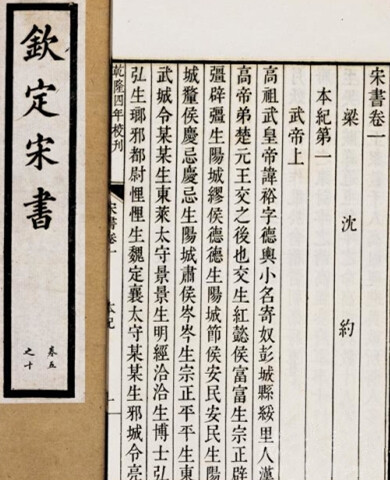 欽定宋書
卷五
之十
宋書卷一
梁 沈 約
本紀第一
武帝上
高祖武皇帝諱裕字德輿小名寄奴彭城縣綏里人漢
高帝弟楚元王交之後也交生紅懿侯富富生宗正辟
彊辟彊生陽城繆侯德德生陽城節侯安民安民生陽
城釐侯慶忌慶忌生陽城肅侯岑岑生宗正平平生東
武城令某某生東萊太守景景生明經洽洽生博士弘
弘生瑯邪都尉悝悝生魏定襄太守某某生邪城令亮
乾隆四年校刊
宋書卷一
本紀
一